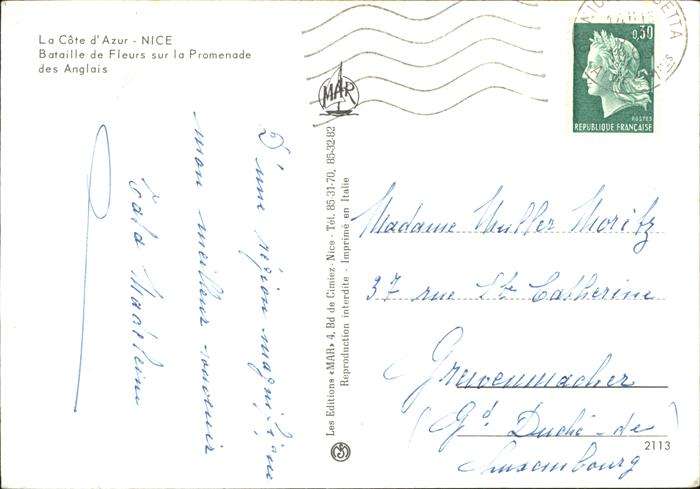 La Côte d'Azur - NICE
Bataille de Fleurs sur la Promenade
des Anglais
MAR
D'une région magnifique
mon meilleur souvenir
Madeleine
Les Editions «MAR» 4, Bd de Cimiez - Nice - Tél. 85 31-70, 85-32-82
Reproduction interdite - Imprimé en Italie
0,30
POSTES
REPUBLIQUE FRANÇAISE
Madame Muller Moritz
37 rue Ste Catherine
Grevenmacher
(Gd Duché-de
Luxembourg
2113